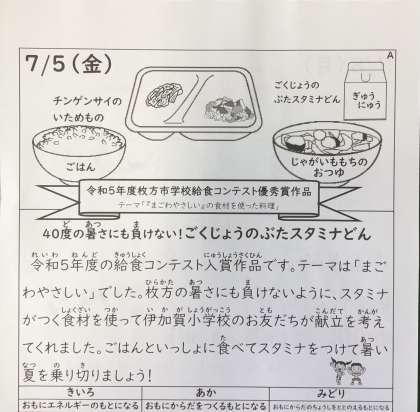 7/5(金)
A
チンゲンサイの
いためもの
ごくじょうの
ぶたスタミナどん
ぎゅう
にゅう
ごはん
じゃがいももちの
おつゆ
令和5年度枚方市学校給食コンテスト優秀賞作品
テーマ「『まごわやさしい』の食材を使った料理」
40度の暑さにも負けない!ごくじょうのぶたスタミナどん
令和5年度の給食コンテスト入賞作品です。テーマは「まご
わやさしい」でした。枚方の暑さにも負けないように、スタミナ
がつく食材を使って伊加賀小学校のお友だちが献立を考え
てくれました。ごはんといっしょに食べてスタミナをつけて暑い
夏を乗り切りましょう!
きいろ
あか
みどり
おもにエネルギーのもとになる
おもにからだをつくるもとになる
おもにからだのちょうしをととのえるもとになる